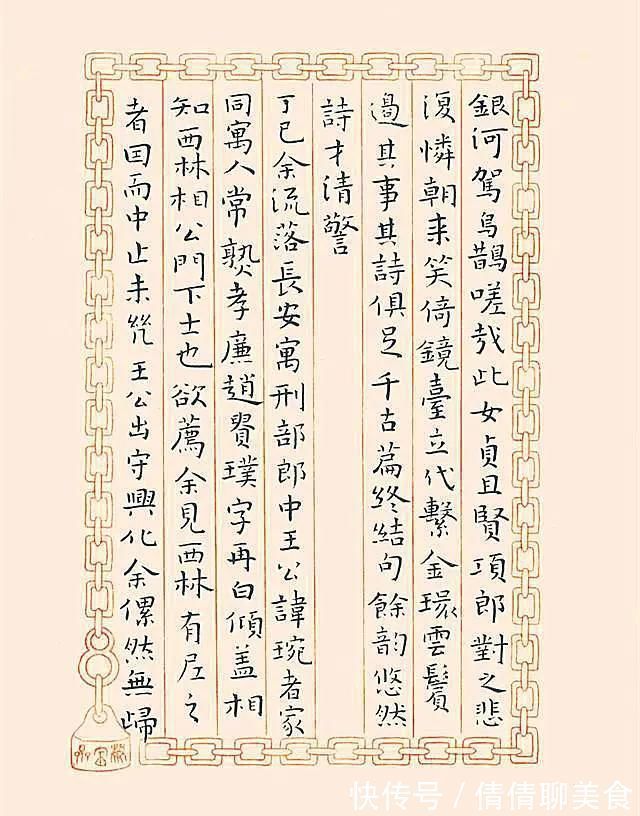 銀河駕鳥鵲嗟哉此女貞且賢項郎對之悲
復憐朝来笑倚鏡臺立代繫金環雲鬢
過其事其詩俱足千古篇終結句餘韵悠然
詩才清警
丁巳余流落長安寓刑部郎中王公諱琬者家
同寓人常熟孝廉趙賢璞字再白傾盖相
知西林相公門下士也欲薦余見西林有尼之
者因而中止未幾王公出守興化余傫然無歸
快传号/倩倩聊美食